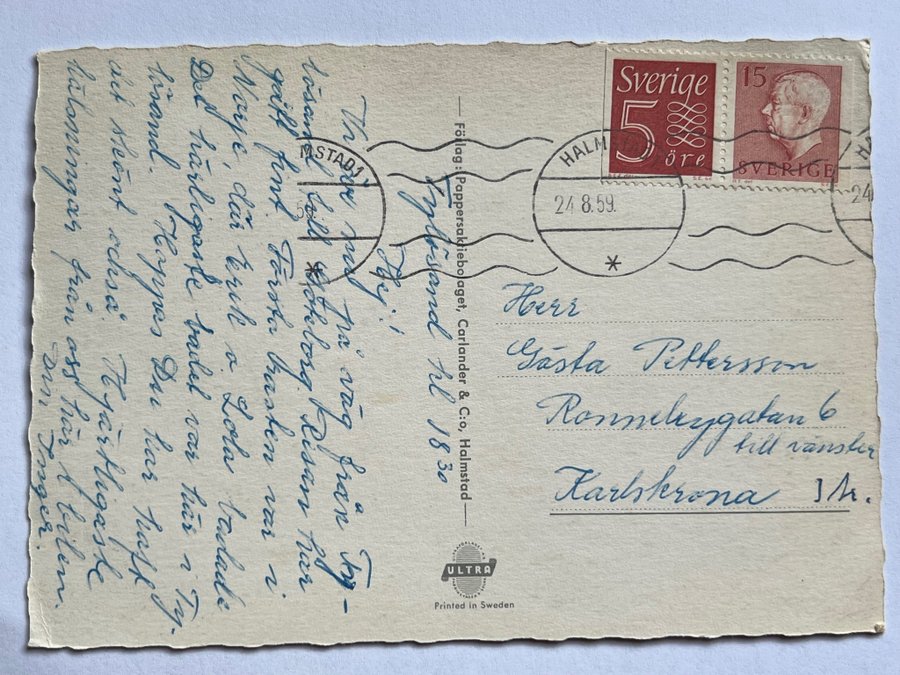 Tylösand kl 18 30
Hej!
Vi är nu på väg från Ty-
lösand till Göteborg. Resan har
gått fint. Första rasten var i
där Erik o. Lola badade
Det härligaste badet var här i Ty-
lösand. Hoppas Du har haft
det skönt också. Hjärtligaste
hälsningar från oss här i bilen.
Din Inger.
Förlag: Pappersaktiebolaget, Carlander & C:o, Halmstad
Sverige
5
öre
15
SVERIGE
MSTAD 1
HALM
24.8.59.
HA
24
Herr
Gösta Pettersson
Ronnebygatan 6
till vänster
Karlskrona 1 tr.
ULTRA
Printed in Sweden